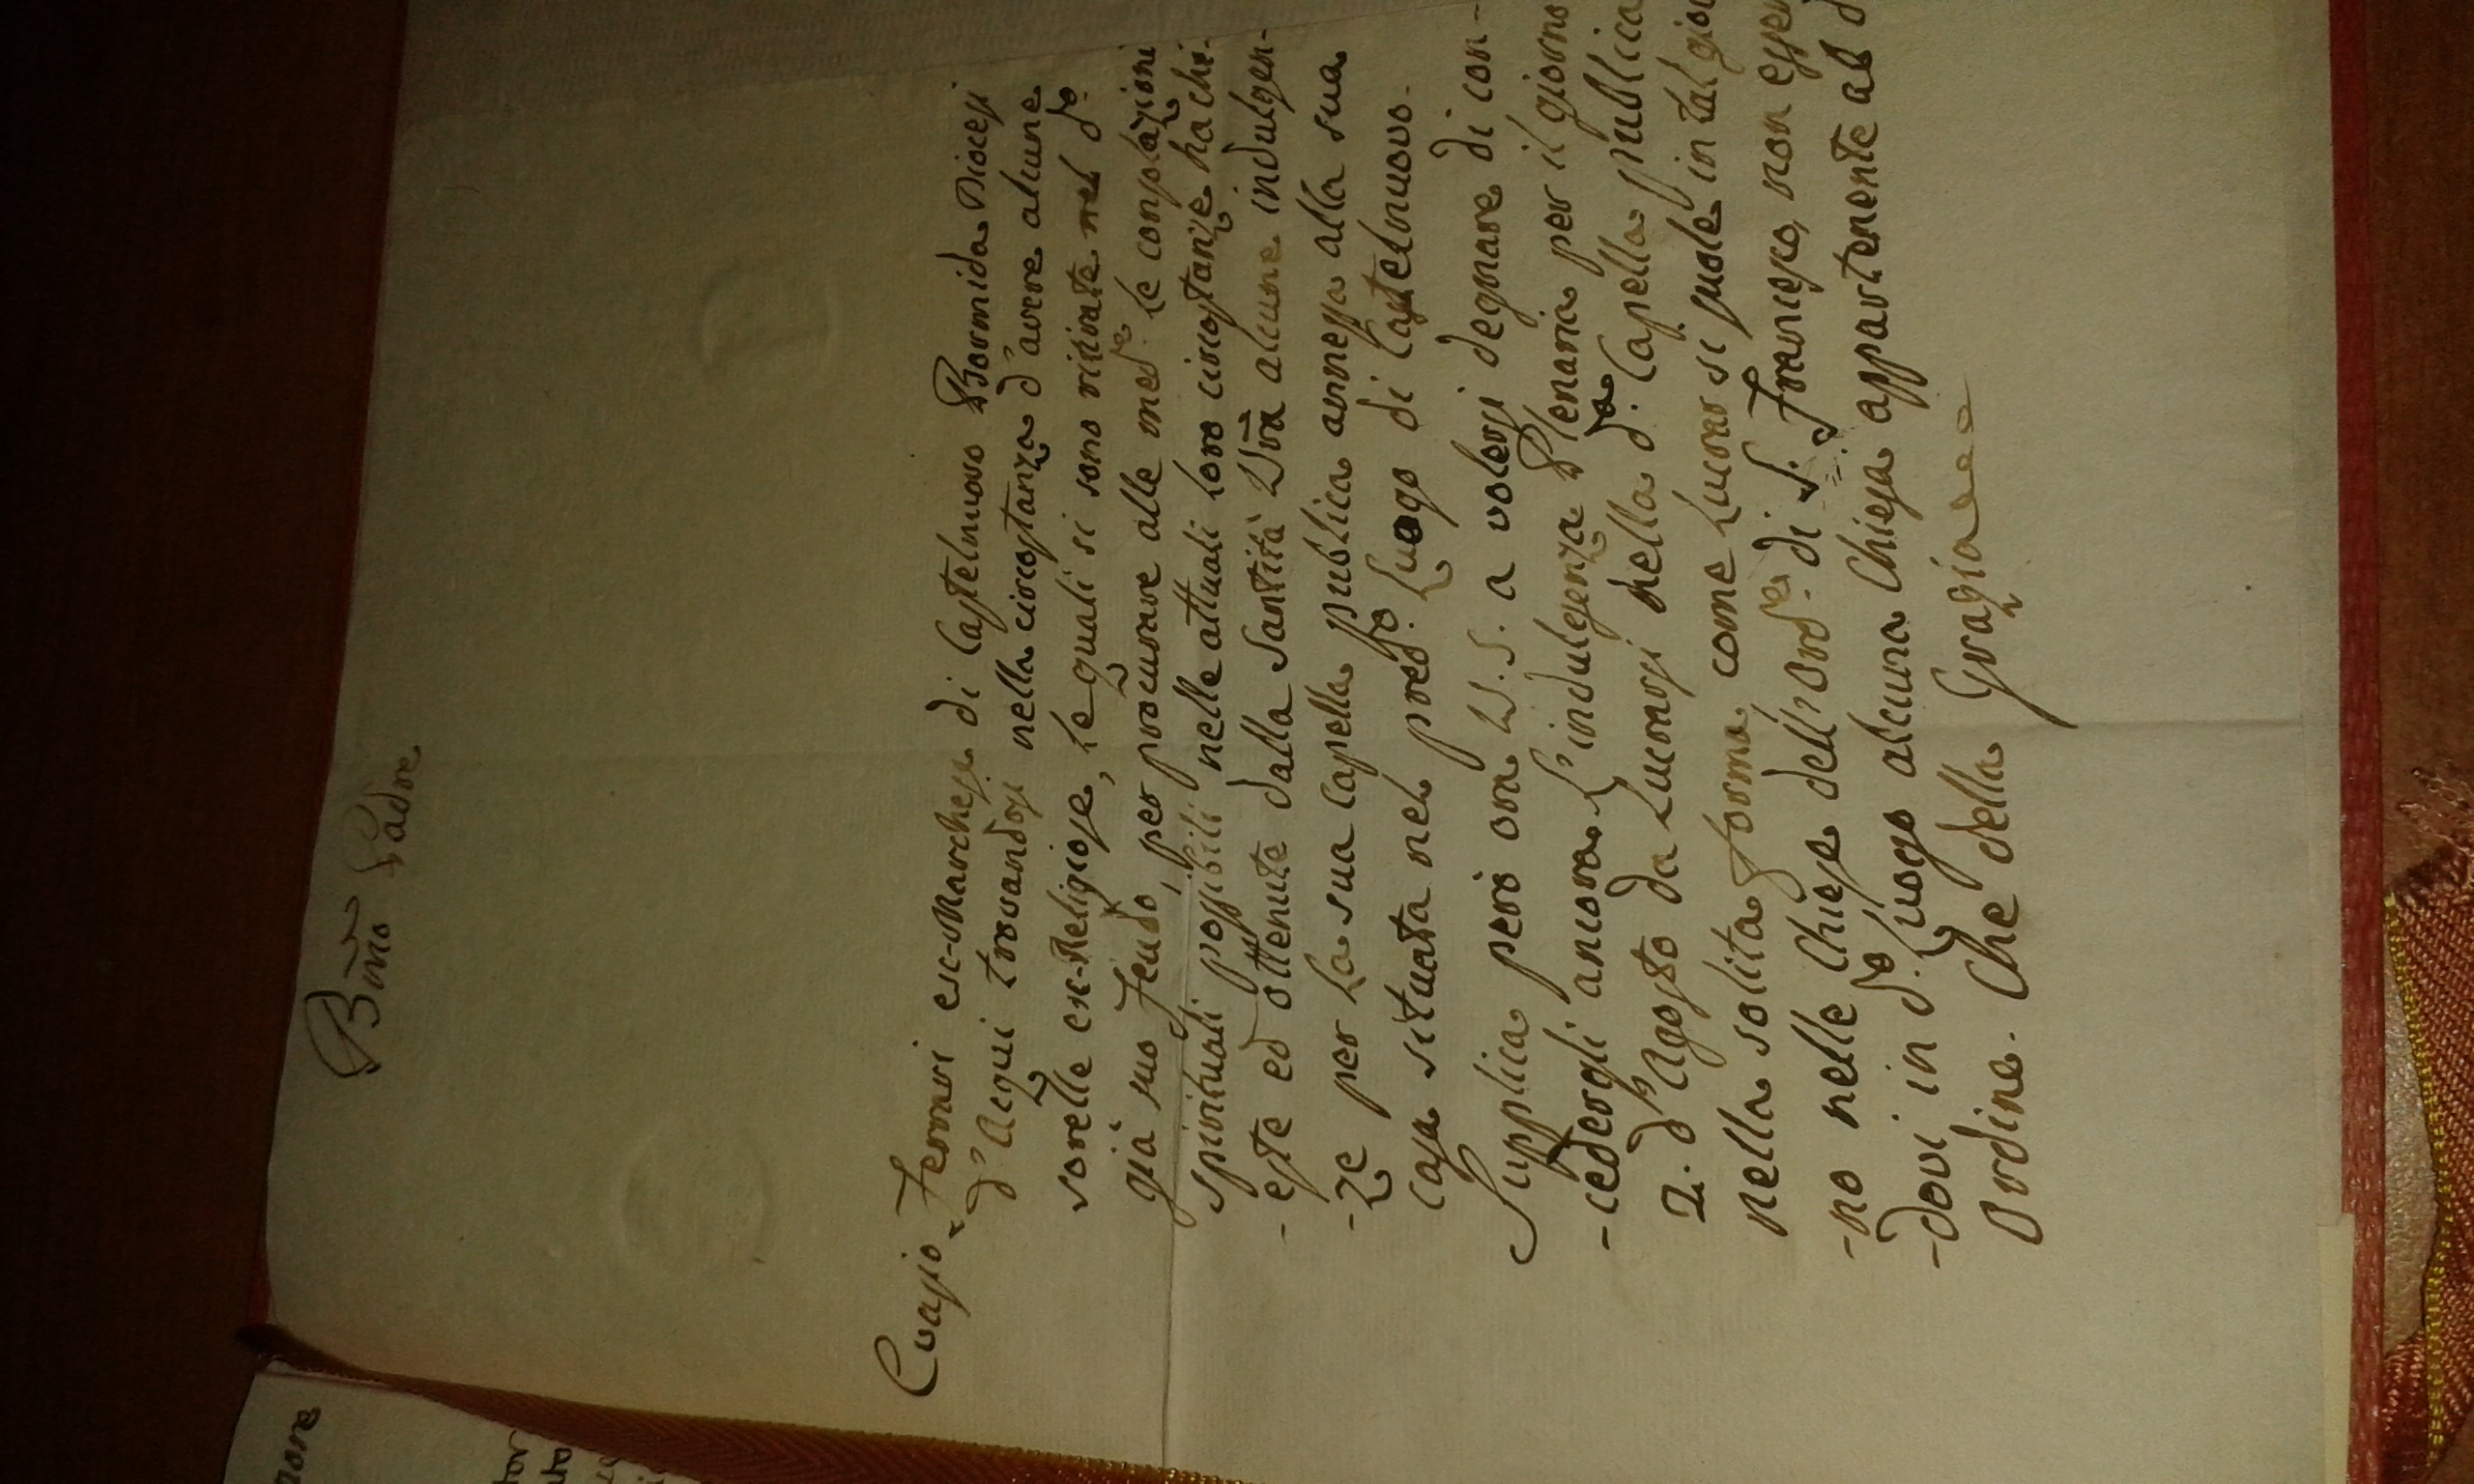 Bmo Padre
Evasio Ferrari ex-Marchese di Castelnuovo Bormida Diocesi
d'Acqui trovandosi nella circostanza d'avere alcune
sorelle ex-Religiose, le quali si sono ritirate nel do.
già suo Feudo, per procurare alle mede. le consolazioni
spirituali possibili nelle attuali loro circostanze ha chi-
-este ed ottenute dalla Santità Vra alcune indulgen-
-ze per la sua Capella publica annessa alla sua
Casa situata nel predo. Luogo di Castelnuovo.
Supplica però ora V. S. a volersi degnare di con-
-cedergli ancora l'indulgenza Plenaria per il giorno
2. d'Agosto da Lucrarsi nella da. Capella publica
nella solita forma, come Lucrar si suole in tal gior
-no nelle Chiese dell'Orde. di S. Francesco, non essen
-dovi in do. Luogo alcuna Chiesa appartenente al d
Ordine. Che della Grazia
more
tor
ato